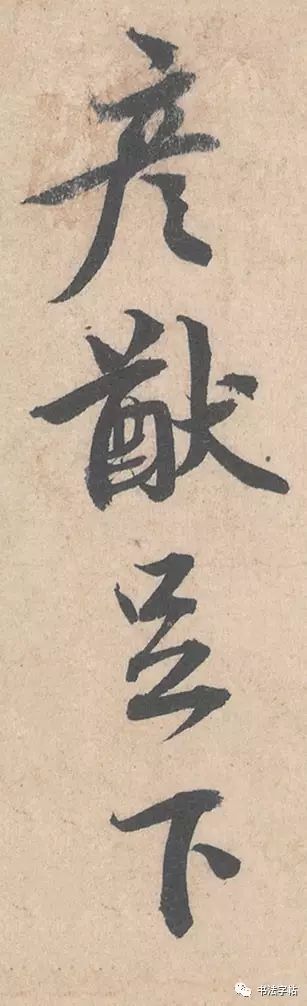 彦猷足下
书法字帖